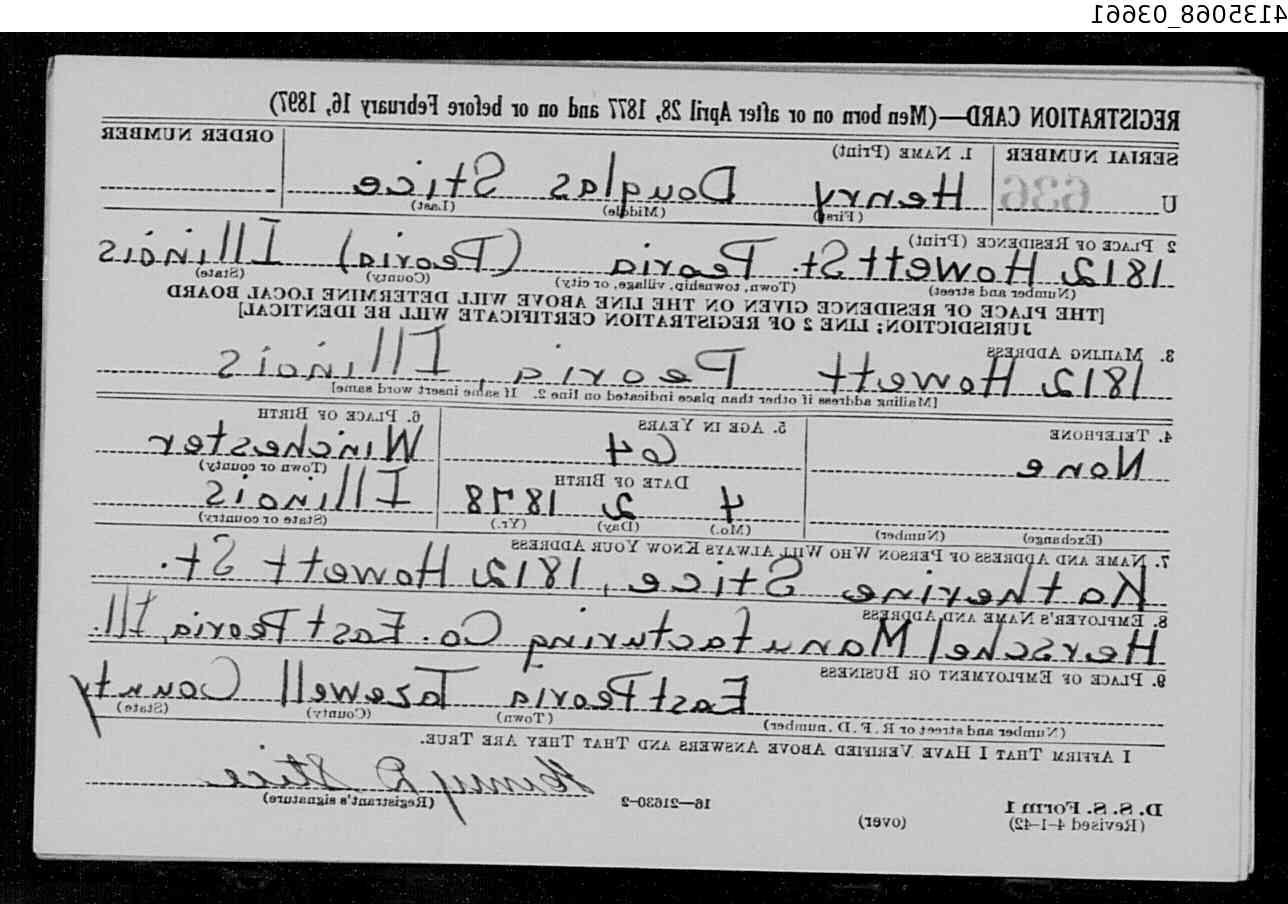 4135068_03661
REGISTRATION CARD—(Men born on or after April 28, 1877 and on or before February 16, 1897)
SERIAL NUMBER 1. NAME (Print) ORDER NUMBER
U 636 Henry Douglas Stice
(First) (Middle) (Last)
2 PLACE OF RESIDENCE (Print)
1812 Howett St. Peoria (Peoria) Illinois
(Number and street) (Town, township, village, or city) (County) (State)
[THE PLACE OF RESIDENCE GIVEN ON THE LINE ABOVE WILL DETERMINE LOCAL BOARD
JURISDICTION; LINE 2 OF REGISTRATION CERTIFICATE WILL BE IDENTICAL]
3. MAILING ADDRESS
1812 Howett Peoria, Illinois
[Mailing address if other than place indicated on line 2. If same insert word same]
4. TELEPHONE 5. AGE IN YEARS 6. PLACE OF BIRTH
None 64 Winchester
(Town or county)
DATE OF BIRTH
4 2 1878 Illinois
(Exchange) (Number) (Mo.) (Day) (Yr.) (State or country)
7. NAME AND ADDRESS OF PERSON WHO WILL ALWAYS KNOW YOUR ADDRESS
Katherine Stice, 1812 Howett St.
8. EMPLOYER'S NAME AND ADDRESS
Herschel Manufacturing Co. East Peoria, Ill.
9. PLACE OF EMPLOYMENT OR BUSINESS
East Peoria Tazewell County
(Number and street or R. F. D. number) (Town) (County) (State)
I AFFIRM THAT I HAVE VERIFIED ABOVE ANSWERS AND THAT THEY ARE TRUE.
Henry D Stice
D. S. S. Form 1 16—21630-2 (Registrant's signature)
(Revised 4-1-42) (over)